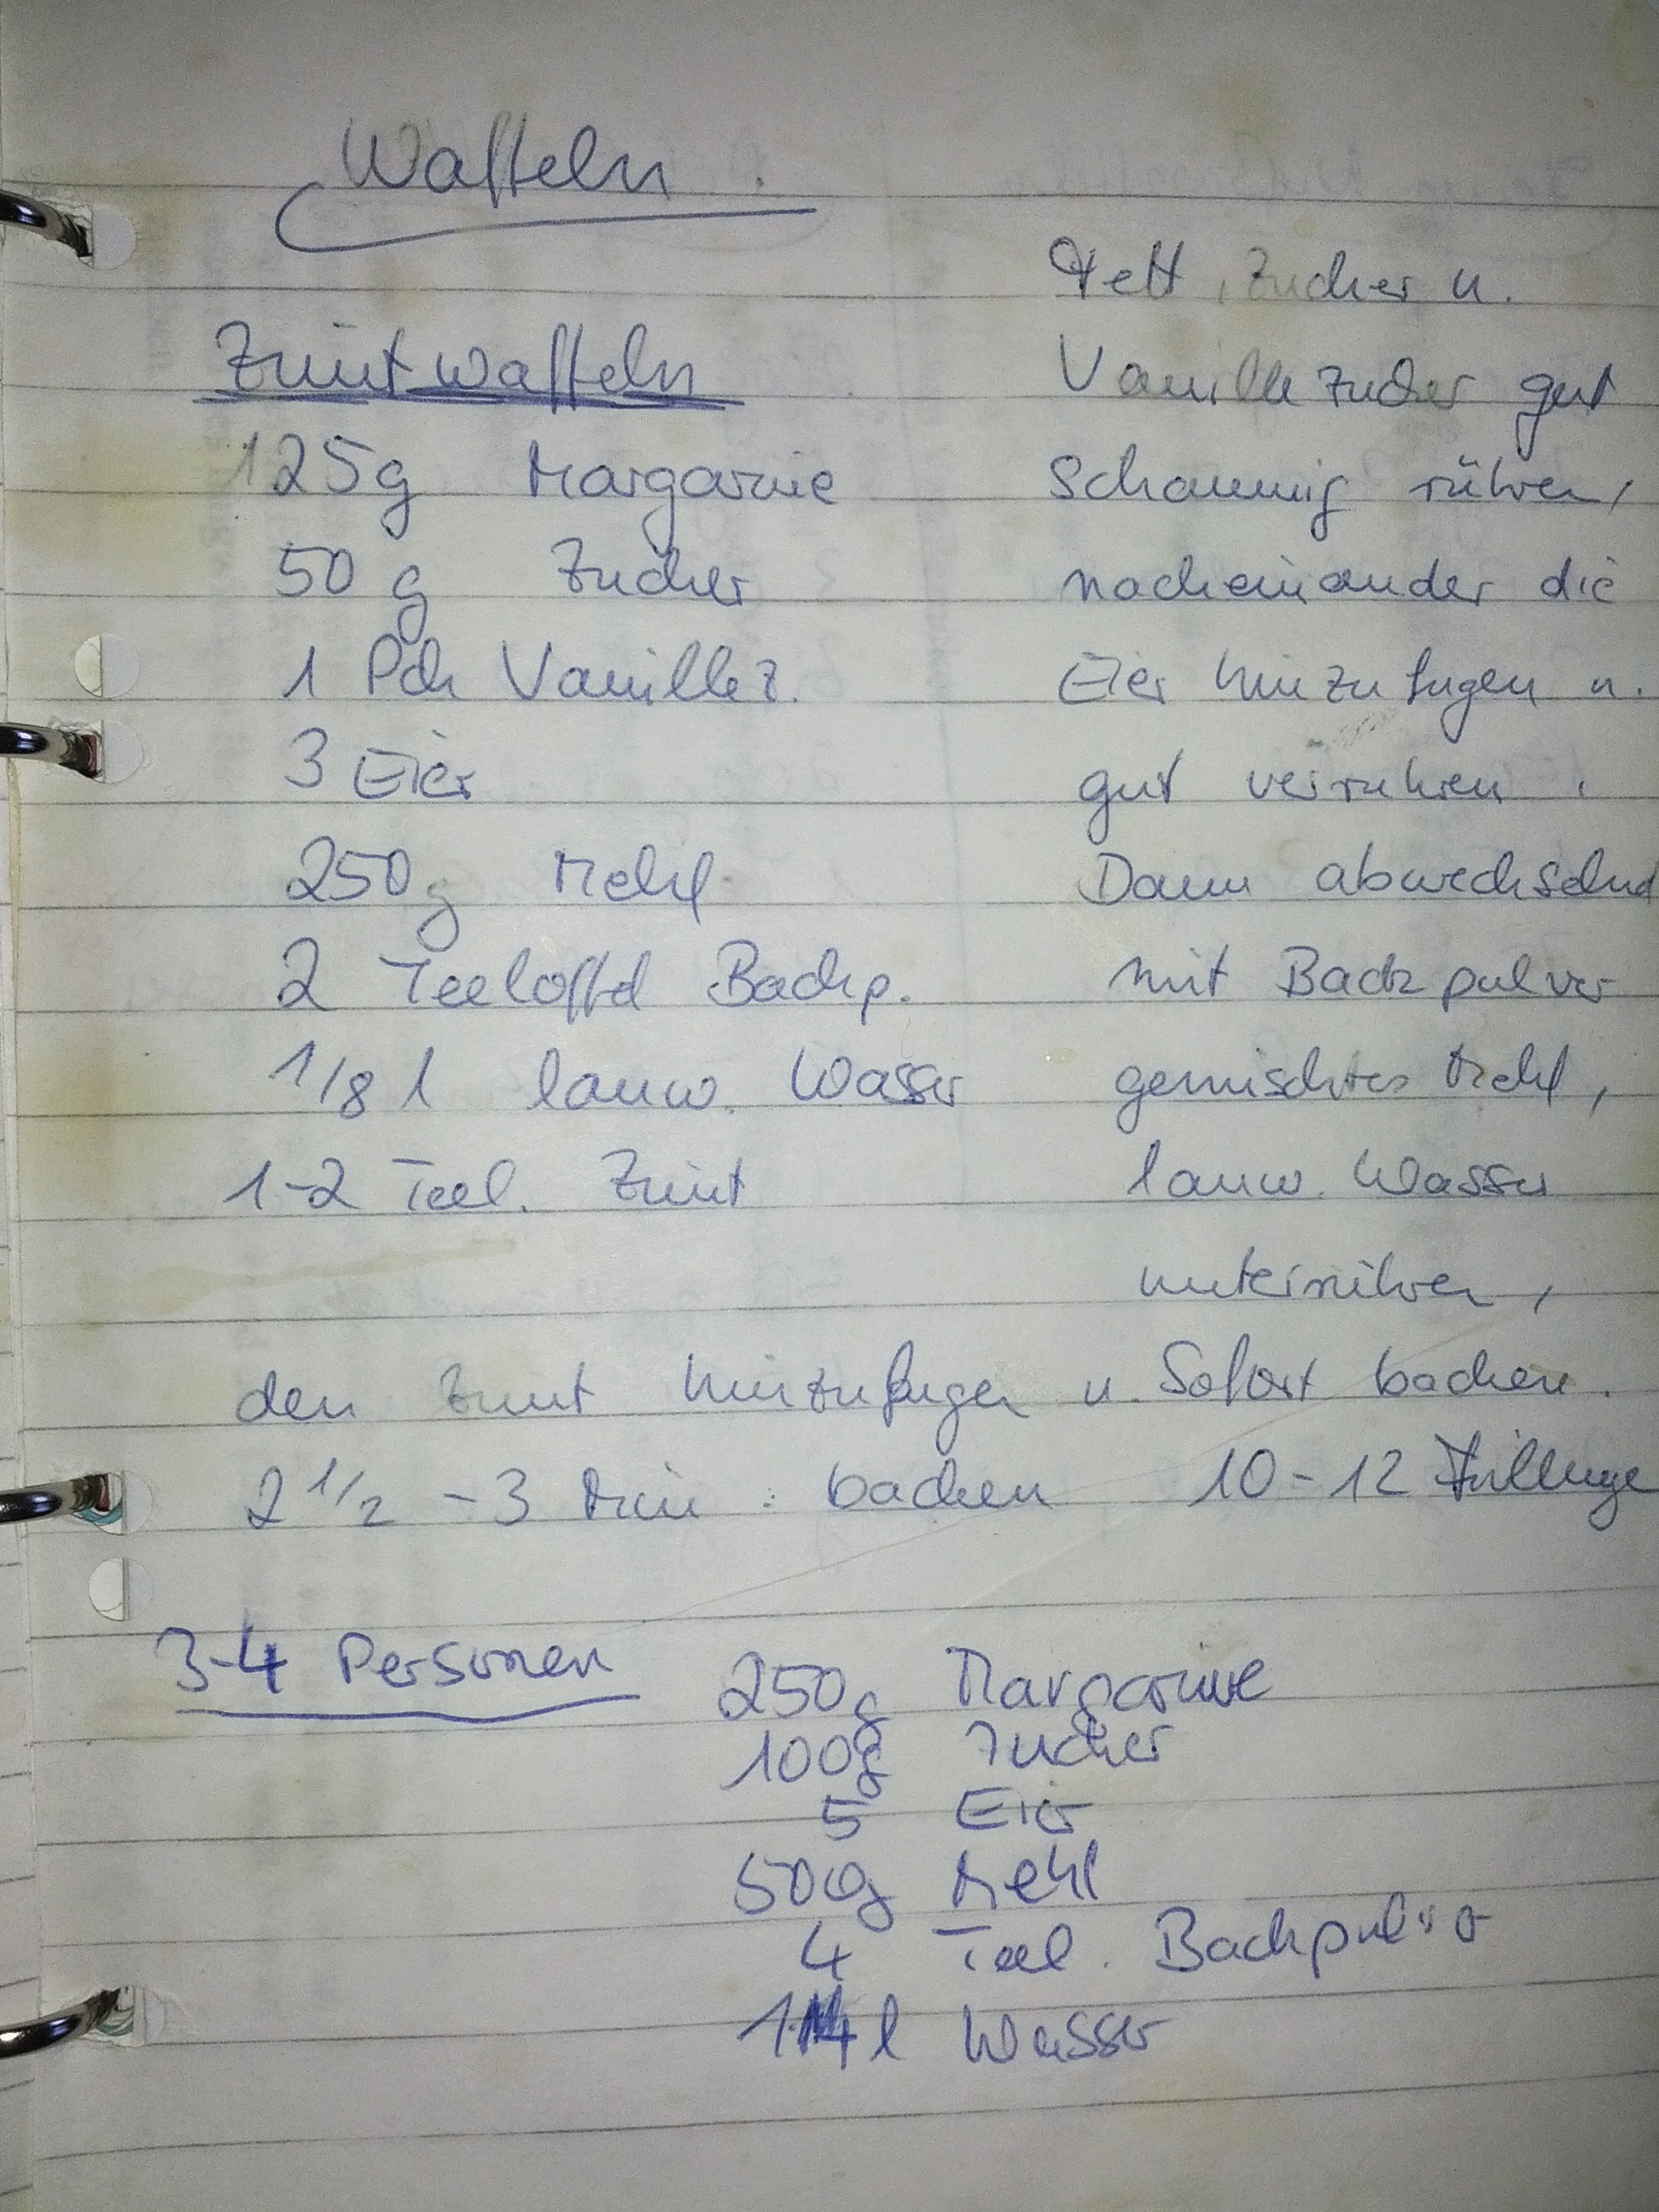 Waffeln.
Zimtwaffeln
125g Margarine
50 g Zucker
1 Pck Vanillez.
3 Eier
250g Mehl
2 Teelöffel Backp.
1/8 l lauw. Wasser
1-2 Teel. Zimt
Fett, Zucker u.
Vanillezucker gut
Schaumig rühren,
nacheinander die
Eier hinzufugen u.
gut verruhren.
Dann abwechselnd
mit Backpulver
gemischtes Mehl,
lauw. Wasser
unterrühren,
den Zimt hinzufugen u. Sofort backen.
2 1/2 - 3 Min. backen 10-12 Füllunge
3-4 Personen
250g Margarine
100g Zucker
5 Eier
500g Mehl
4 Teel. Backpulver
l Wasser